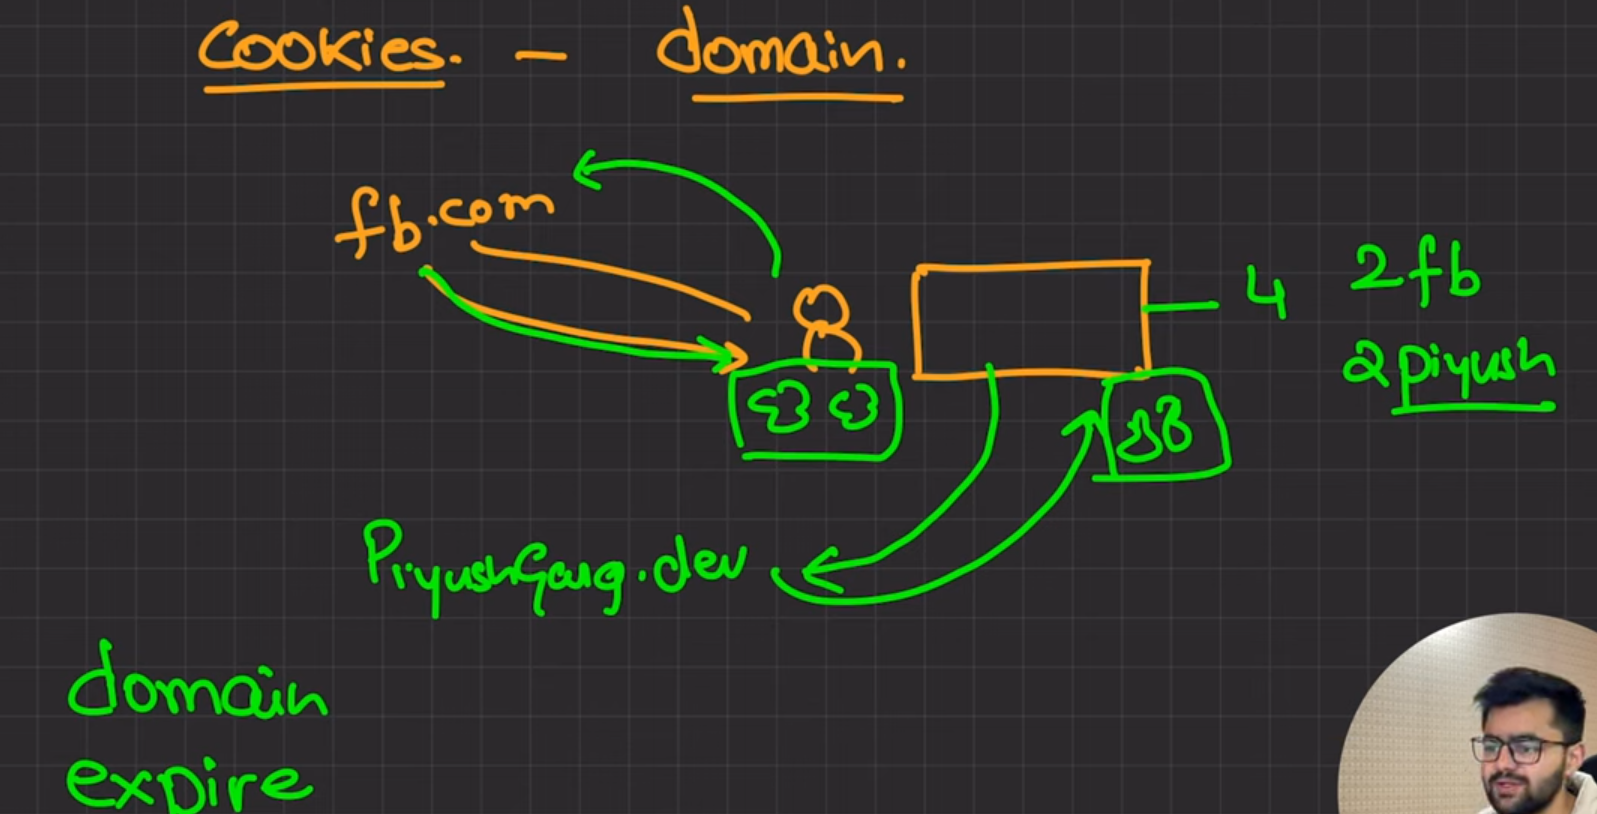 Cookies. - domain.
fb.com
4 2fb
2piyush
PiyushGarg.dev
domain
expire